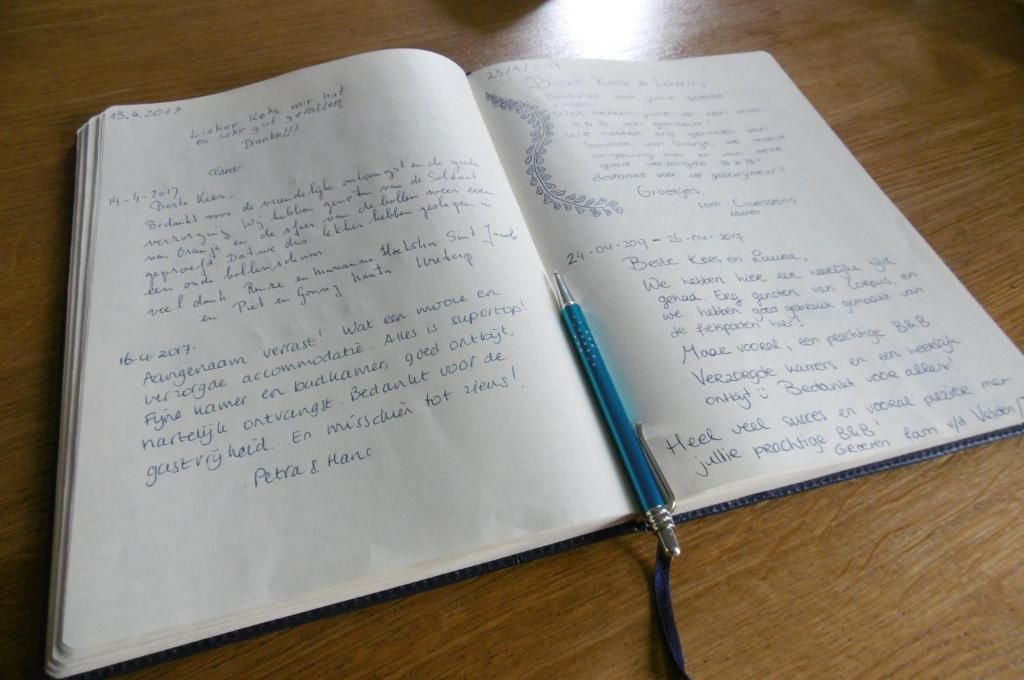 13.4.2017
Lieber Kees mir hat
es sehr gut gefallen
Danke!!!
14-4-2017
Beste Kees,
Bedankt voor de vriendelijke ontvangst en de goede
verzorging. Wij hebben genoten van de Soldaat
van Oranje en de sfeer van de bollen weer even
geproefd. Dat we dus lekker hebben geslapen in
een oude bollenschuur
veel dank Rense en Marianne Sint Jacob
en Piet en Wreterp
16-4-2017.
Aangenaam verrast! Wat een mooie en
verzorgde accommodatie. Alles is supertop!
Fijne kamer en badkamer, goed ontbijt,
hartelijk ontvangst. Bedankt voor de
gastvrijheid. En misschien tot ziens!
Petra & Hans
23/4/2017
Beste Kees & Laura,
Bedankt voor jullie goede
zorgen.
Wat hebben jullie er een mooi
B&B. van gemaakt!
We hebben erg genoten van
Soldaat van Oranje, de mooie
omgeving en van deze
goed verzorgde B&B!
Bedankt voor de gastvrijheid!!
Groetjes,
fam
24-04-2017 - 26-04-2017
Beste Kees en Laura,
We hebben hier een heerlijke tijd
gehad. Erg genoten van Corpus, en
we hebben goed gebruik gemaakt van
de fietspaden hier!
Maar vooral; een prachtige B&B.
Verzorgde kamers en een heerlijk
ontbijt Bedankt voor alles!
Heel veel succes en vooral plezier met
jullie prachtige B&B!
Groeten fam v/d Velden